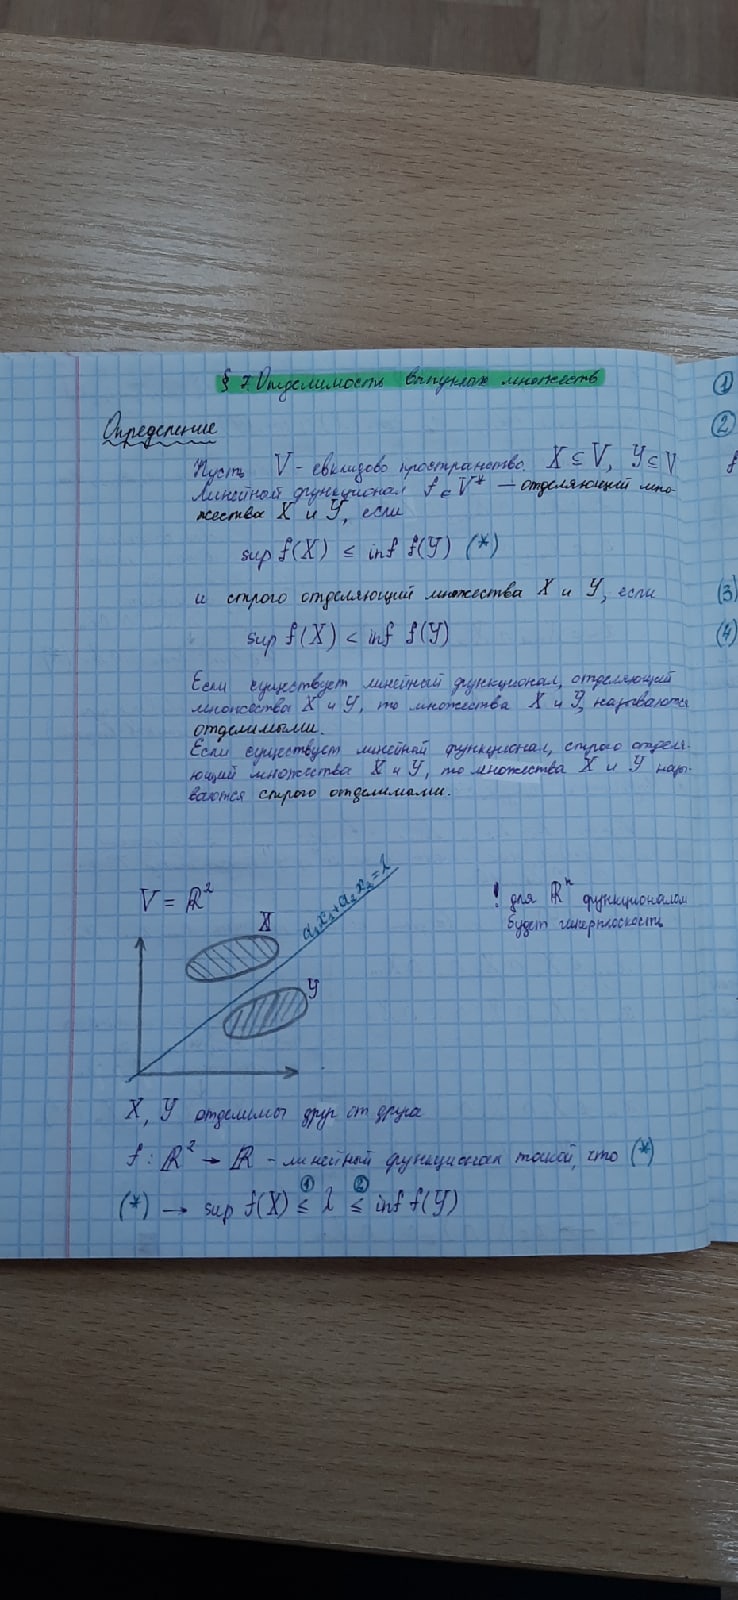 § 7. Отделимость выпуклых множеств
①
Определение
②
Пусть V - евклидово пространство. X ⊆ V, Y ⊆ V
f
Линейный функционал f ∈ V* — отделяющий мно-
жества X и Y, если
sup f(X) ≤ inf f(Y) (*)
и строго отделяющий множества X и Y, если
(3)
sup f(X) < inf f(Y)
(4)
Если существует линейный функционал, отделяющий
множества X и Y, то множества X и Y называются
отделимыми.
Если существует линейный функционал, строго отделя-
ющий множества X и Y, то множества X и Y назы-
ваются строго отделимыми.
V = ℝ²
X
α₁x₁+α₂x₂=λ
Y
! для ℝⁿ функционалом
будет гиперплоскость
X, Y отделимы друг от друга
f : ℝ² → ℝ - линейный функционал такой, что (*)
① ②
(*) → sup f(X) ≤ λ ≤ inf f(Y)